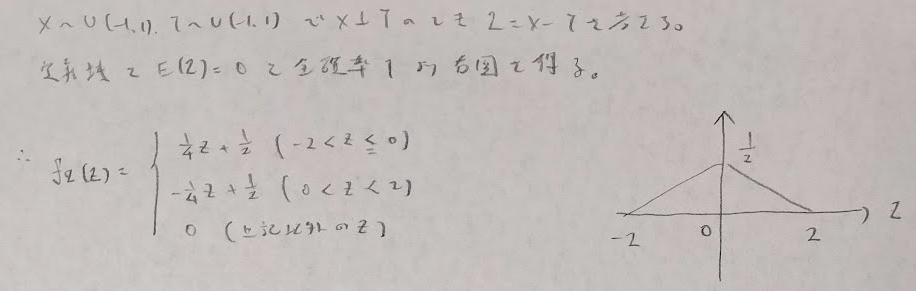 X~U(-1,1). Y~U(-1,1) で X⊥Y のとき Z=X-Yを考える。
定義域と E(Z)=0 と全確率1 より右図を得る。
∴ fz(z)= { 1/4 z + 1/2 (-2<z≦0)
-1/4 z + 1/2 (0<z<2)
0 (上記以外のz)
1/2
-2 0 2 Z